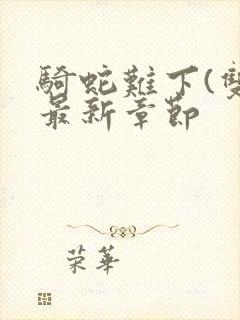 騎蛇難下(雙
最新章節
荣華